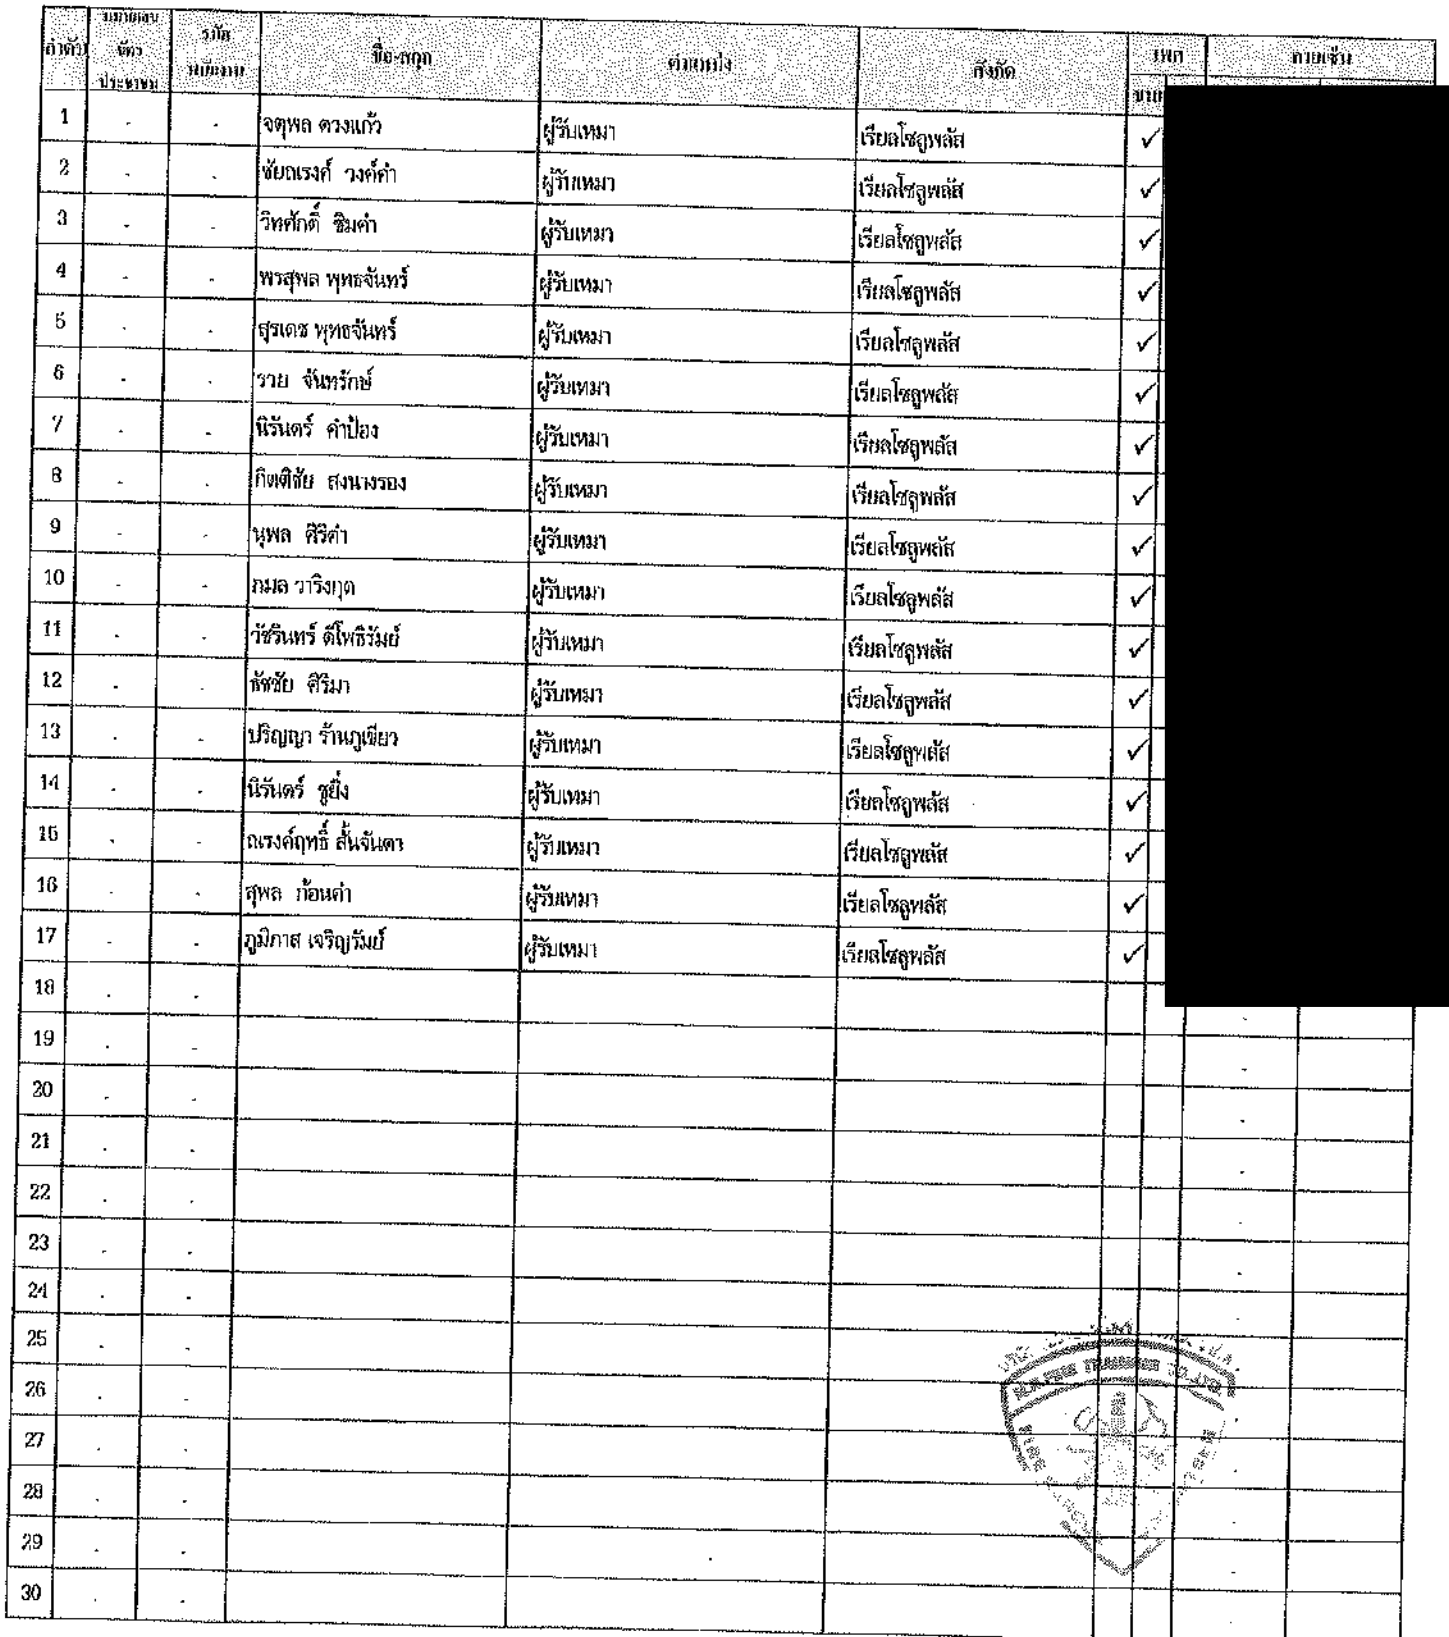 ลำดับ หมายเลขบัตรประชาชน รหัสพนักงาน ชื่อ-สกุล ตำแหน่ง สังกัด เพศ ลายเซ็น
ชาย
1 - - จตุพล ดวงแก้ว ผู้รับเหมา เรียลโซลูพลัส ✓
2 - - ชัยณรงค์ วงค์คำ ผู้รับเหมา เรียลโซลูพลัส ✓
3 - - วิทศักดิ์ ซิมคำ ผู้รับเหมา เรียลโซลูพลัส ✓
4 - - พรสุพล พุทธจันทร์ ผู้รับเหมา เรียลโซลูพลัส ✓
5 - - สุรเดช พุทธจันทร์ ผู้รับเหมา เรียลโซลูพลัส ✓
6 - - รวย จันทรักษ์ ผู้รับเหมา เรียลโซลูพลัส ✓
7 - - นิรันดร์ คำป้อง ผู้รับเหมา เรียลโซลูพลัส ✓
8 - - กิตติชัย สงนางรอง ผู้รับเหมา เรียลโซลูพลัส ✓
9 - - นุพล ศิริคำ ผู้รับเหมา เรียลโซลูพลัส ✓
10 - - กมล วาริงกุด ผู้รับเหมา เรียลโซลูพลัส ✓
11 - - วัชรินทร์ ดีโพธิรัมย์ ผู้รับเหมา เรียลโซลูพลัส ✓
12 - - ธัชชัย ศิริมา ผู้รับเหมา เรียลโซลูพลัส ✓
13 - - ปริญญา ร้านภูเขียว ผู้รับเหมา เรียลโซลูพลัส ✓
14 - - นิรันดร์ ชูยิ่ง ผู้รับเหมา เรียลโซลูพลัส ✓
15 - - ณรงค์ฤทธิ์ สั้นจันตา ผู้รับเหมา เรียลโซลูพลัส ✓
16 - - สุพล ก้อนคำ ผู้รับเหมา เรียลโซลูพลัส ✓
17 - - ภูมิภาส เจริญรัมย์ ผู้รับเหมา เรียลโซลูพลัส ✓
18 - - -
19 - - -
20 - - -
21 - - -
22 - - -
23 - - -
24 - -
25 - -
26 - - -
27 - - -
28 - - -
29 - - -
30 - - -